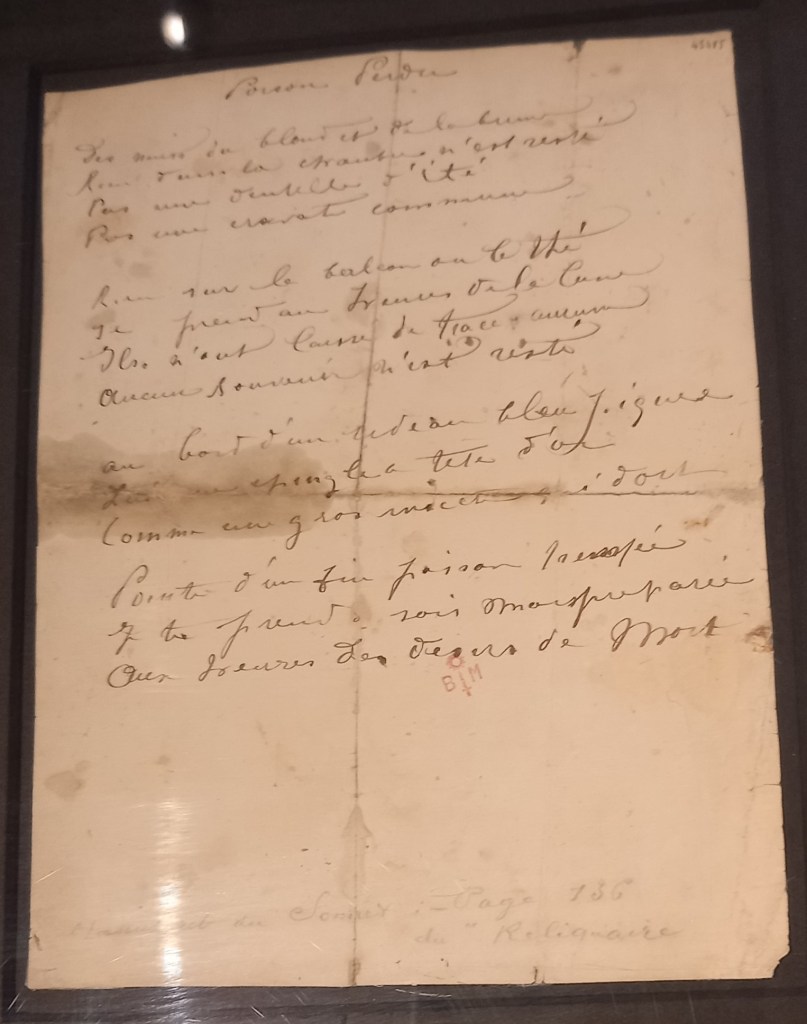 45485
Poison Perdu
Des nuits du blond et de la brune
Rien dans la chambre n'est resté
Pas une dentelle d'été
Pas une cravate commune
Rien sur le balcon ou le thé
Se prend aux heures de la lune
Ils n'ont laissé de trace aucune
Aucun souvenir n'est resté
Au bord d'un rideau bleu piquée
Luit une epingle a tete d'or
Comme un gros insecte qui dort
Pointe d'un fin poison trempée
J te prends sois moi preparée
Aux heures des desirs de Mort
BJM
Manuscrit du Sonnet : - Page 136
du "Reliquaire